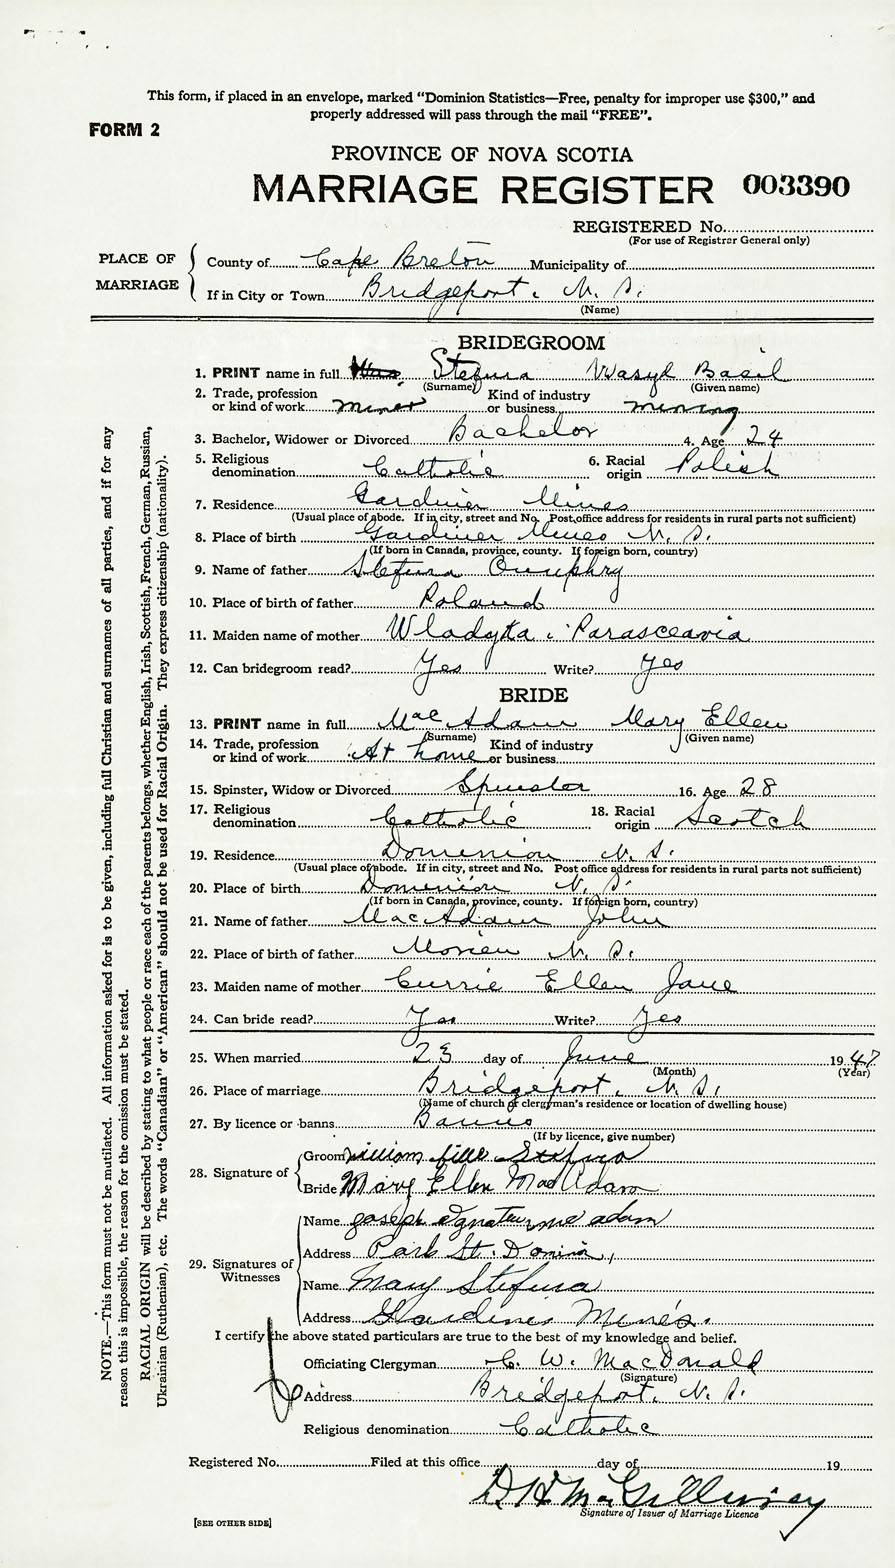 This form, if placed in an envelope, marked “Dominion Statistics—Free, penalty for improper use $300,” and
properly addressed will pass through the mail “FREE”.
FORM 2
PROVINCE OF NOVA SCOTIA
MARRIAGE REGISTER 003390
REGISTERED No.
(For use of Registrar General only)
PLACE OF MARRIAGE
County of Cape Breton Municipality of
If in City or Town Bridgeport. N. S.
(Name)
BRIDEGROOM
1. PRINT name in full Stefura Wasyl Basil
(Surname) (Given name)
2. Trade, profession or kind of work miner Kind of industry or business mining
3. Bachelor, Widower or Divorced Bachelor 4. Age 24
5. Religious denomination Catholic 6. Racial origin Polish
7. Residence Gardiner Mines
(Usual place of abode. If in city, street and No. Post office address for residents in rural parts not sufficient)
8. Place of birth Gardiner Mines N. S.
(If born in Canada, province, county. If foreign born, country)
9. Name of father Stefura Onuphry
10. Place of birth of father Poland
11. Maiden name of mother Wladyka Parasceavia
12. Can bridegroom read? Yes Write? Yes
BRIDE
13. PRINT name in full MacAdam Mary Ellen
(Surname) (Given name)
14. Trade, profession or kind of work At home Kind of industry or business
15. Spinster, Widow or Divorced Spinster 16. Age 28
17. Religious denomination Catholic 18. Racial origin Scotch
19. Residence Dominion N. S.
(Usual place of abode. If in city, street and No. Post office address for residents in rural parts not sufficient)
20. Place of birth Dominion N. S.
(If born in Canada, province, county. If foreign born, country)
21. Name of father MacAdam John
22. Place of birth of father Morien N. S.
23. Maiden name of mother Currie Ellen Jane
24. Can bride read? Yes Write? Yes
25. When married 23 day of June 1947
(Month) (Year)
26. Place of marriage Bridgeport, N. S.
(Name of church or clergyman's residence or location of dwelling house)
27. By licence or banns Banns
(If by licence, give number)
28. Signature of
Groom William Stefura
Bride Mary Ellen MacAdam
29. Signatures of Witnesses
Name Joseph mc adam
Address Park St. Domin.,
Name Mary Stefura
Address Gardiner Mines.
I certify the above stated particulars are true to the best of my knowledge and belief.
Officiating Clergyman C. W. MacDonald
(Signature)
Address Bridgeport, N. S.
Religious denomination Catholic
Registered No. Filed at this office day of 19
D H MacGillivray
Signature of Issuer of Marriage Licence
[SEE OTHER SIDE]
NOTE.—This form must not be mutilated. All information asked for is to be given, including full Christian and surnames of all parties, and if for any
reason this is impossible, the reason for the omission must be stated.
RACIAL ORIGIN will be described by stating to what people or race each of the parents belongs, whether English, Irish, Scottish, French, German, Russian,
Ukrainian (Ruthenian), etc. The words “Canadian” or “American” should not be used for Racial Origin. They express citizenship (nationality).